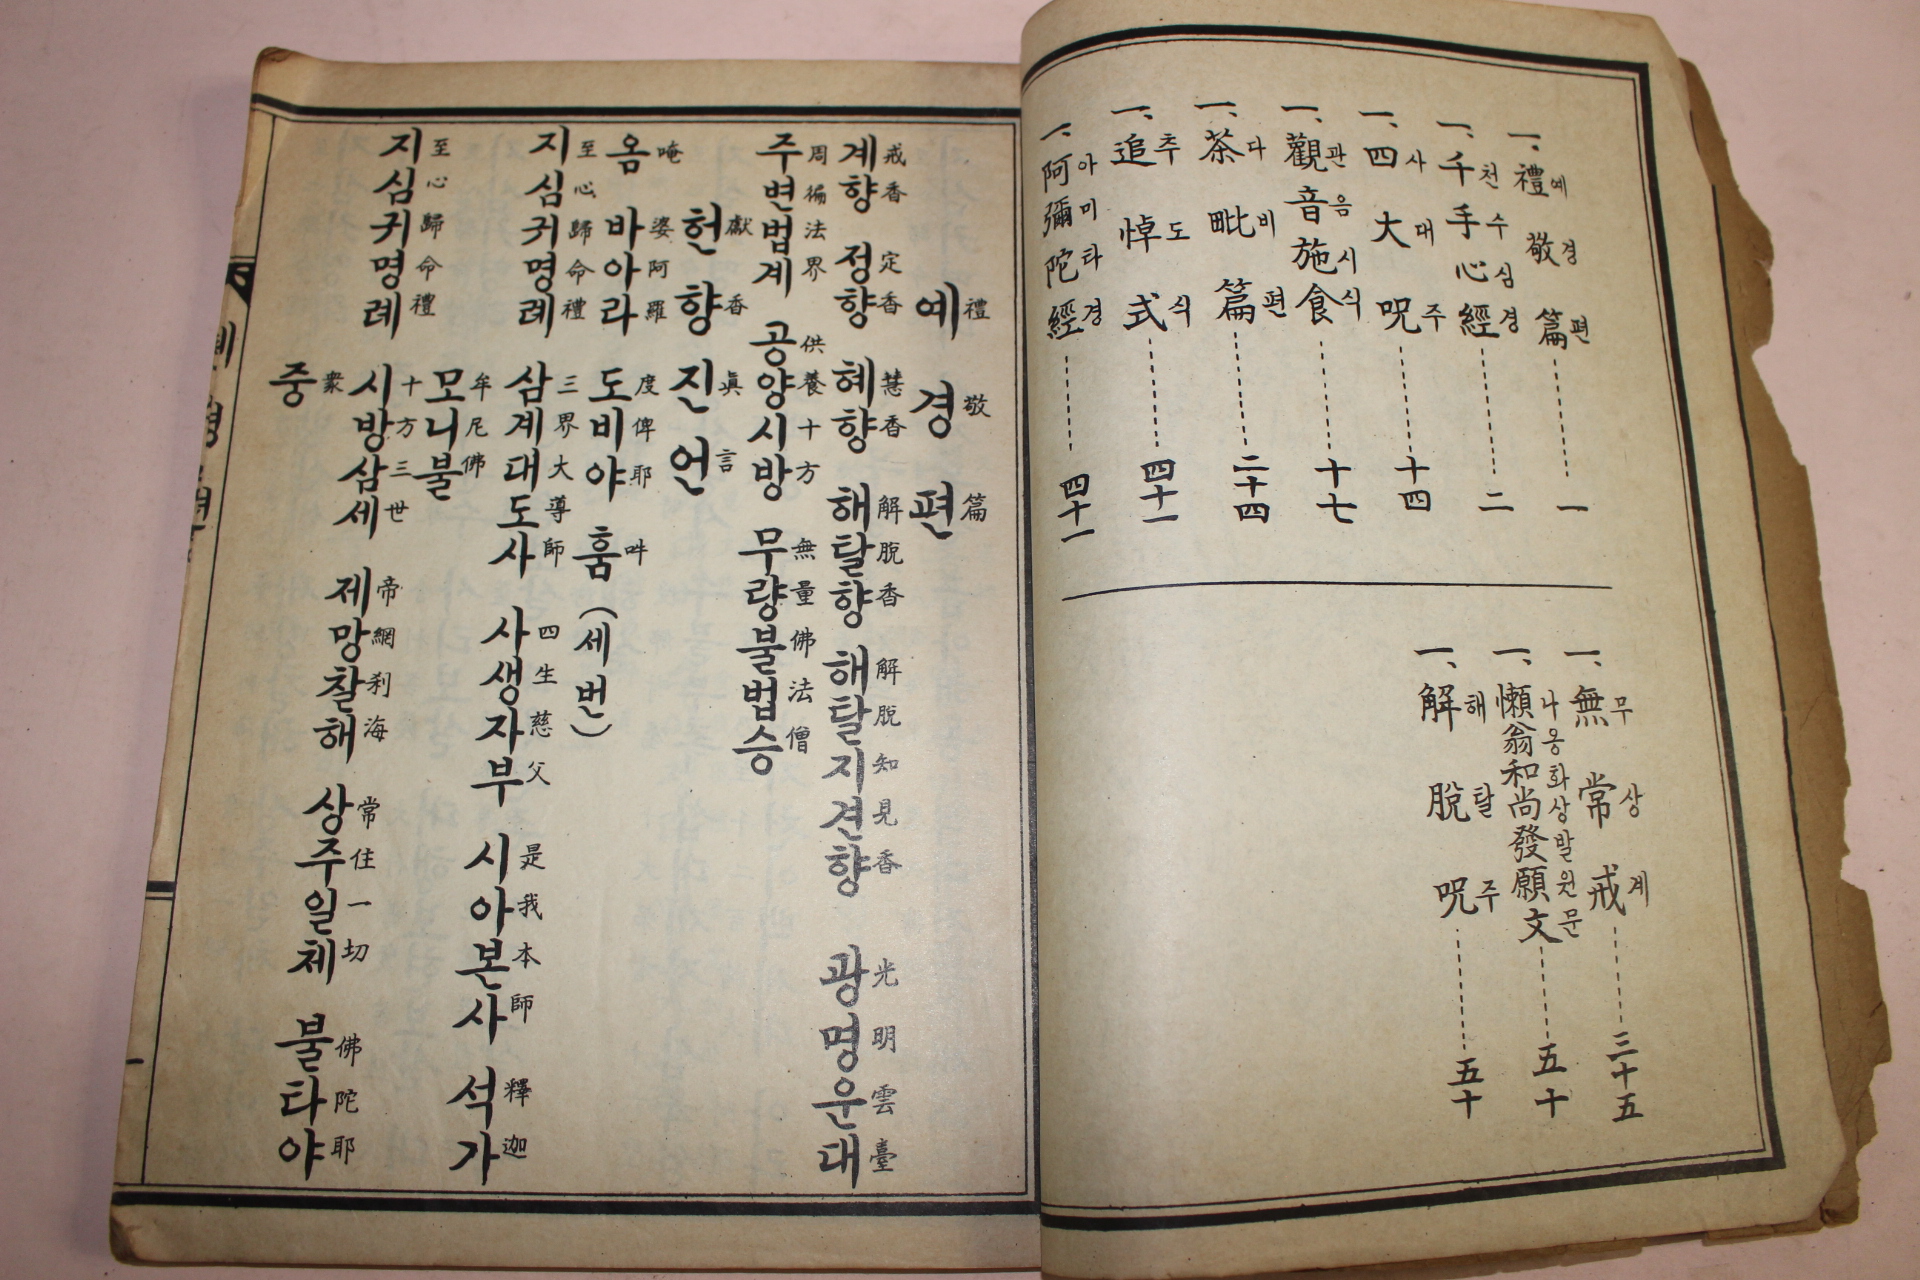 一、禮敬篇 一
예경편
一、千手心經 二
천수심경
一、四大呪 十四
사대주
一、觀音施食 十七
관음시식
一、茶毗篇 二十四
다비편
一、追悼式 四十一
추도식
一、阿彌陀經 四十一
아미타경
一、無常戒 三十五
무상계
一、懶翁和尚發願文 五十
나옹화상발원문
一、解脫呪 五十
해탈주
예경편
禮敬篇
계향 정향 혜향 해탈향 해탈지견향 광명운대
戒香 定香 慧香 解脫香 解脫知見香 光明雲臺
주변법계 공양시방 무량불법승
周徧法界 供養十方 無量佛法僧
헌향진언
獻香眞言
옴 바아라 도비야 훔 (세번)
唵 婆阿羅 度俾耶 吽
지심귀명례 삼계대도사 사생자부 시아본사 석가
至心歸命禮 三界大導師 四生慈父 是我本師 釋迦
모니불
牟尼佛
지심귀명례 시방삼세 제망찰해 상주일체 불타야
至心歸命禮 十方三世 帝網刹海 常住一切 佛陀耶
중
衆
一